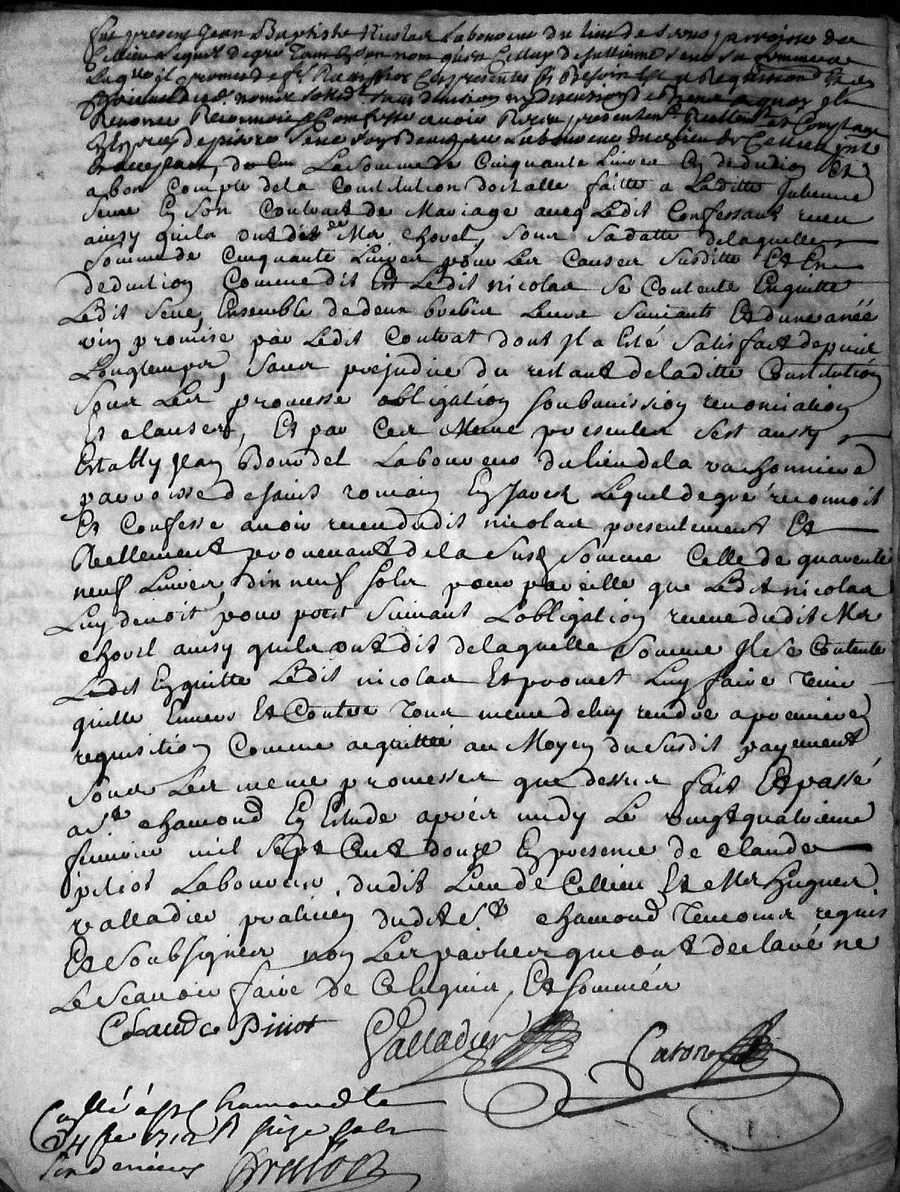 fut present Jean Baptiste Nicolas Laboureur du lieu de paroisse de
Cellieu Lequel de gré tant en son nom de Jullienne Sene sa femme a
Laquelle promet de fe Ratiffier Ces presentes
sans division ny discution
Renoncé Reconnoit et Confesse avoir Receu presentement Reellement Comptant
Sene Laboureur dudit lieu de Cellieu
La Somme de Cinquante Livres En deduction Et
a bon Compte de la Constitution dotalle faitte a Laditte Jullienne
Sene En Son Contract de Mariage avecq Ledit Confessant receu
ainsy quils ont dit de Mr Chovel, sous Sa datte de laquelle
Somme de Cinquante Livres pour Les Causes Susditte Et En
deduction Comme dit Est Ledit nicolas Se Contente Enquitte
Ledit Sene, Ensemble de deux brebis Leurs Suivants Et d'une anée
vin promise par Ledit Contrat dont Il a Esté Satisfait depuis
Longtemps, Sans prejudice du restant de laditte Constitution
Sous Les promesse obligation soubmission renonciation
Et clauses, Et par Ces Meme presentes Sest aussy
Estably Jean Bourdel Laboureur du lieu de la vachonniere
parroisse de saint romain En Jarest Lequel de gré reconnoit
Et Confesse avoir receu dudit nicolas presentement Et
Reellement provenant de la Susd Somme Celle de quarente
neuf Livres, dix neuf sols pour pareille que Ledit nicolas
Luy devoit pour Suivant Lobligation receue dudit Mr
chovel ainsy quils ont dit de laquelle Somme Il se Contente
Ledit Enquitte Ledit nicolas Et promet Luy faire Tenir
quitte Envers Et Contre Tous meme de luy rendre a premiere
requisition Comme acquittée au Moyen du Susdit payement
Sous Les meme promesses que dessus fait Et passé
a St chamond En Estude apres midy Le vingt quatrieme
fevrier mil Sept Cent douze En presence de Claude
pitiot Laboureur, dudit Lieu de Cellieu Et Mr hugues
valladier praticien dudit St chamond Temoins requis
Et Soubsignes non Les parties qui ont declaré ne
Le Scavoir faire de Ce Enquis, Et Sommés
Claude Pitiot
Valladier
Cllé à St Chamond le
24 fe 1712 R seize sols
six deniers